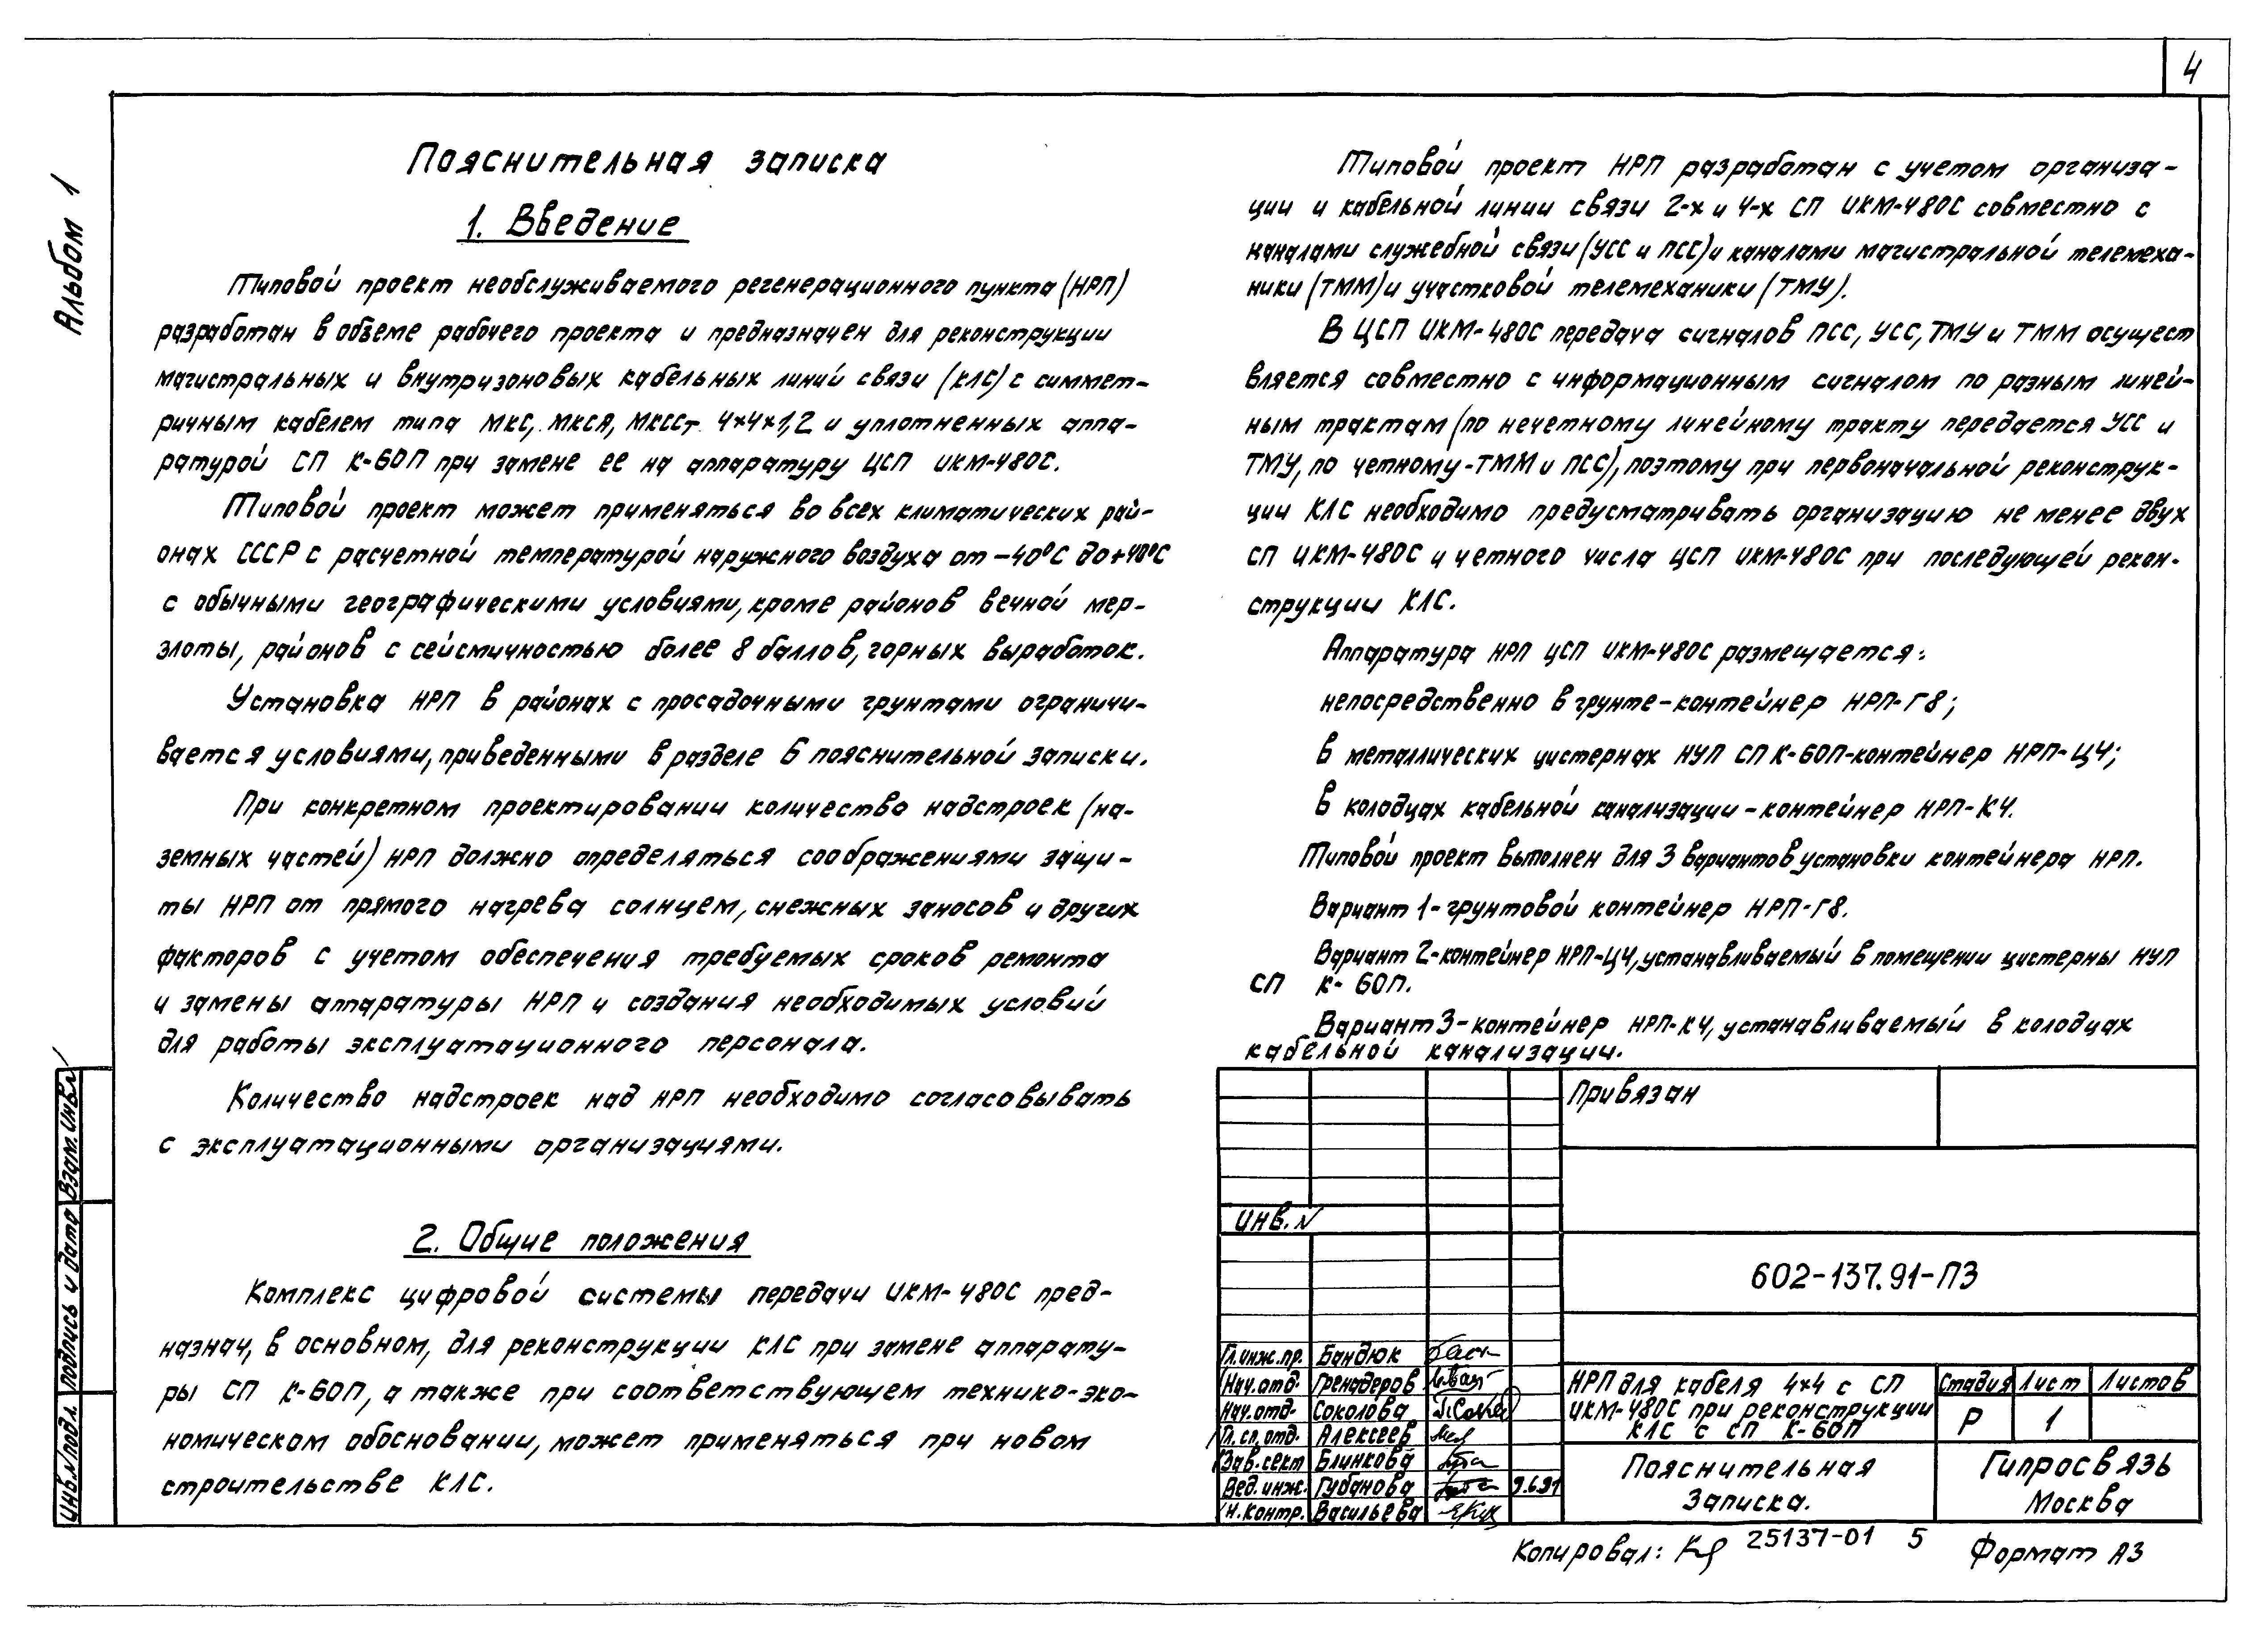 4
Альбом 1
Пояснительная записка
1. Введение
Типовой проект необслуживаемого регенерационного пункта (НРП)
разработан в объеме рабочего проекта и предназначен для реконструкции
магистральных и внутризоновых кабельных линий связи (КЛС) с симмет-
ричным кабелем типа МКС, МКСЯ, МКССт 4×4×1,2 и уплотненных аппа-
ратурой СП К-60П при замене ее на аппаратуру ЦСП ИКМ-480С.
Типовой проект может применяться во всех климатических рай-
онах СССР с расчетной температурой наружного воздуха от -40°С до +40°С
с обычными географическими условиями, кроме районов вечной мер-
злоты, районов с сейсмичностью более 8 баллов, горных выработок.
Установка НРП в районах с просадочными грунтами ограничи-
вается условиями, приведенными в разделе 6 пояснительной записки.
При конкретном проектировании количество надстроек (на-
земных частей) НРП должно определяться соображениями защи-
ты НРП от прямого нагрева солнцем, снежных заносов и других
факторов с учетом обеспечения требуемых сроков ремонта
и замены аппаратуры НРП и создания необходимых условий
для работы эксплуатационного персонала.
Количество надстроек над НРП необходимо согласовывать
с эксплуатационными организациями.
2. Общие положения
Комплекс цифровой системы передачи ИКМ-480С пред-
назнач, в основном, для реконструкции КЛС при замене аппарату-
ры СП К-60П, а также при соответствующем технико-эко-
номическом обосновании, может применяться при новом
строительстве КЛС.
Типовой проект НРП разработан с учетом организа-
ции и кабельной линии связи 2-х и 4-х СП ИКМ-480С совместно с
каналами служебной связи (УСС и ПСС) и каналами магистральной телемеха-
ники (ТММ) и участковой телемеханики (ТМУ).
В ЦСП ИКМ-480С передача сигналов ПСС, УСС, ТМУ и ТММ осущест
вляется совместно с информационным сигналом по разным линей-
ным трактам (по нечетному линейному тракту передается УСС и
ТМУ, по четному-ТММ и ПСС), поэтому при первоначальной реконструк-
ции КЛС необходимо предусматривать организацию не менее двух
СП ИКМ-480С и четного числа ЦСП ИКМ-480С при последующей рекон-
струкции КЛС.
Аппаратура НРП ЦСП ИКМ-480С размещается:
непосредственно в грунте-контейнер НРП-Г8;
в металлических цистернах НУП СП К-60П-контейнер НРП-Ц4;
в колодцах кабельной канализации-контейнер НРП-К4.
Типовой проект выполнен для 3 вариантов установки контейнера НРП.
Вариант 1-грунтовой контейнер НРП-Г8.
Вариант 2-контейнер НРП-Ц4, устанавливаемый в помещении цистерны НУП
СП К-60П.
Вариант 3-контейнер НРП-К4, устанавливаемый в колодцах
кабельной канализации.
Привязан
Инв.N
602-137.91-ПЗ
Гл.инж.пр. Бандюк
Нач.отд. Гренадеров
Нач.отд. Соколова
Гл.сп.отд. Алексеев
Зав.сект Блинкова
Вед.инж. Губанова 9.6.91
Н.контр. Васильева
НРП для кабеля 4×4 с СП
ИКМ-480С при реконструкции
КЛС с СП К-60П
Стадия Лист Листов
Р 1
Пояснительная
Записка.
Гипросвязь
Москва
Взам.инв.N
Подпись и дата
Инв.N подл.
Копировал: 25137-01 5 Формат А3